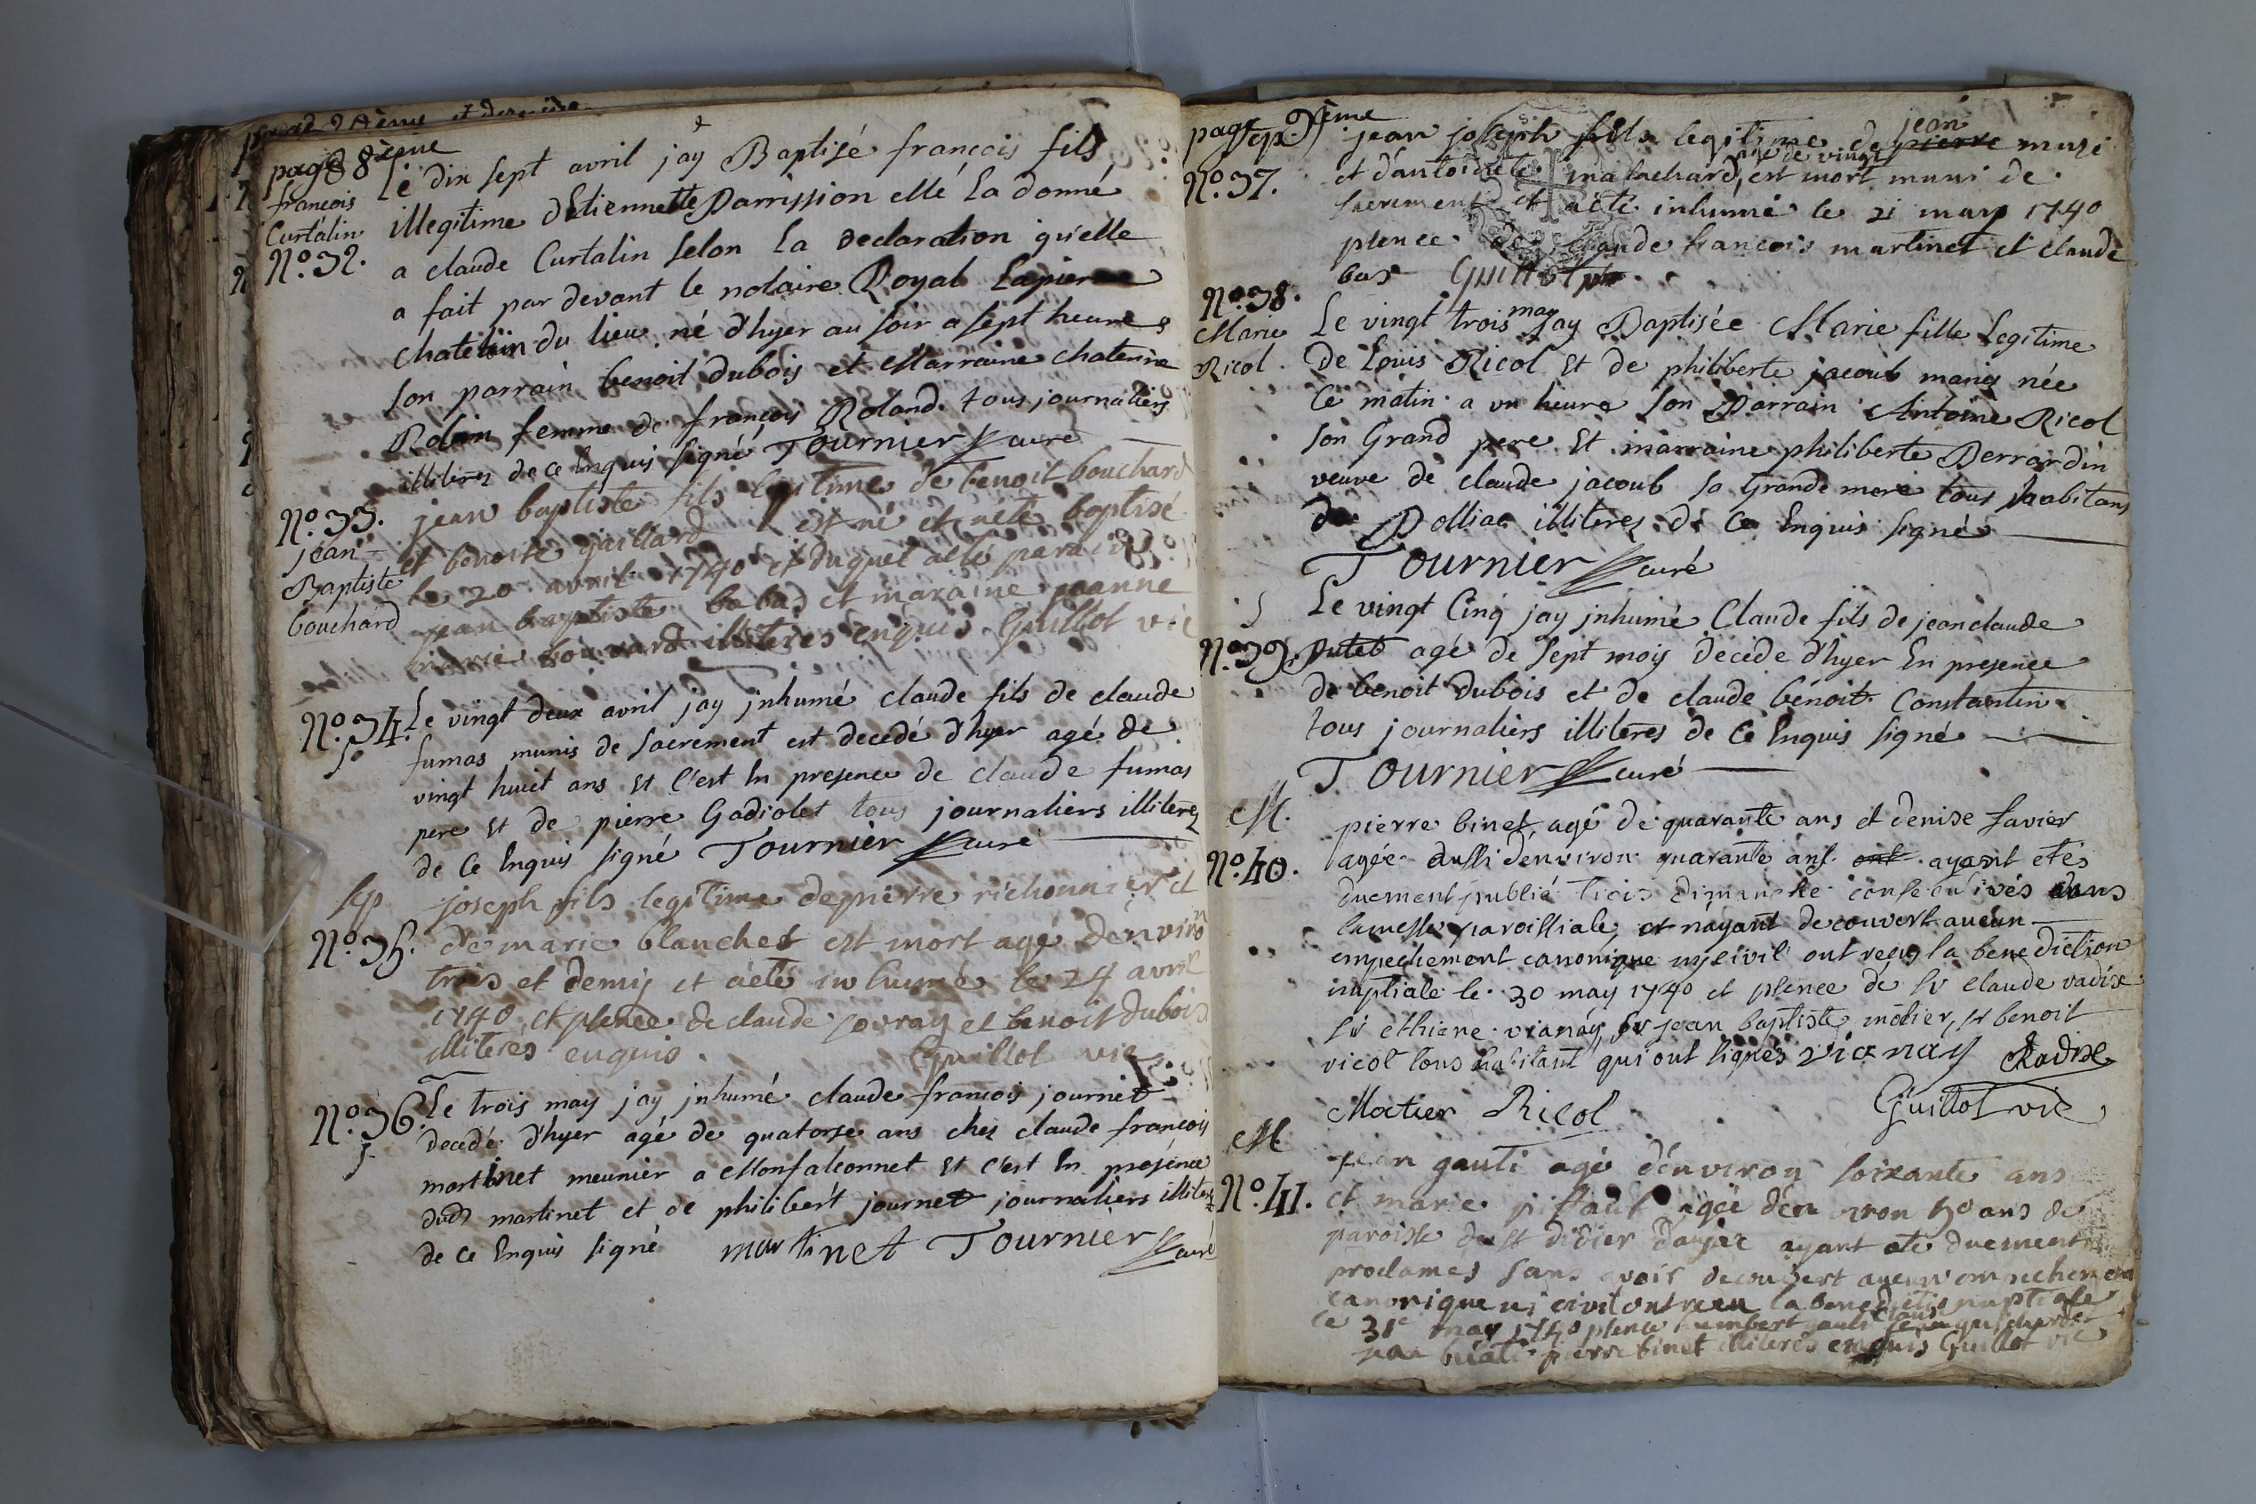 page 8ème
françois
Curtalin
N°. 32.
Le dix sept avril jay Baptisé francois fils
illegitime d'Etiennette Parrission elle la donné
a claude Curtalin selon la declaration qu'elle
a fait par devant le notaire Royal Lapierre
chatelain du lieu né d'hyer au soir a sept heures
son parrain benoit Dubois et Marraine chaterine
Rolain femme de françois Roland tous journaliers
illiterez de ce Enquis signé Tournier curé
N°. 33.
jean
Baptiste
bouchard
jean baptiste fils legitime de benoit bouchard
et benoite gaillard est né et aété baptisé
le 20 avril 1740 et duquel aété parain
jean baptiste babad et maraine jeanne
marie illiteres enquis Guillot vic
N°. 34.
S
Le vingt deux avril jay jnhumé claude fils de claude
fumas munis de sacrement est decedé d'hyer agé de
vingt huit ans Et C'est En presence de claude fumas
pere Et de pierre Gadiolet tous journaliers illiterez
de Ce Enquis signé Tournier curé
Sep
N°. 35.
joseph fils legitime de pierre richonnier et
de marie blanchet est mort agé d'environ
trois et demij et aété inhumé le 24 avril
1740 et plence de claude et benoit dubois
illiteres enquis. Guillot vic
N°. 36.
S
Le trois may jay jnhumé claude francois journet
decedé d'hyer agé de quatorse ans chez claude francois
martinet meunier a Monfalconnet Et C'est En presence
dud martinet et de philibert journet journaliers illiterez
de Ce Enquis signé martinet Tournier curé
page 9ème
Sep.
N°. 37.
jean joseph fils legitime de pierre jean
et d'antoinette malachard, est mort muni de
sacrement et aété inhumé le 21 may 1740
plence de claude francois martinet et claude
bas Guillot
N°. 38.
Marie
Ricol
Le vingt trois may jay Baptisée Marie fille Legitime
De Louis Ricol Et de philiberte jacoub mariés née
Ce matin a un heure son Parrain Antoine Ricol
son Grand pere Et marraine philiberte Perrardin
veuve de claude jacoub sa Grande mere tous habitans
de Polliac illiterez de Ce Enquis signé
Tournier curé
S
N°. 39.
Le vingt Cinq jay jnhumé Claude fils de jean claude
Putet agé de sept mois decede d'hyer En presence
de benoit Dubois et de claude benoit Constantin
tous journaliers illiteres de Ce Enquis signé
Tournier curé
M.
N°. 40.
pierre binet, agé de quarante ans et denise favier
agée aussi d'environ quarante ans ont ayant etés
duement publié trois dimanche consecutives dans
la messe paroissiale, et n'ayant decouvert aucun
empechement canonique ny civil ont reçu la benediction
nuptiale le 30 may 1740 et plence de sr claude vadixe
sr ethiene vianay, sr jean baptiste matier, sr benoit
ricol tous habitant qui ont signés vianay Radixe
Matier Ricol Guillot vic
M
N°. 41.
jean gauti agé d'environ soixante ans
et marie agée d'environ 50 ans de
paroisse de st didier ayant été duement
proclames sans avoir decouvert aucun empechement
canonique ni civil ont reçu la benediction nuptiale
le 31e may 1740 plence humbert gauti
pierre binet illiteres enquis Guillot vic